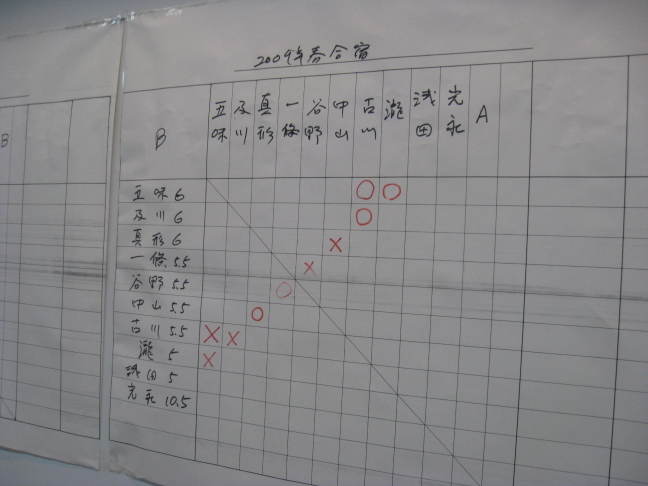 2009年春合宿
B 五味 及川 真形 一條 谷野 中山 古川 瀧 浅田 光永 A
B
五味 6 ○ ○
及川 6 ○
真形 6 ×
一條 5.5 ×
谷野 5.5 ○
中山 5.5 ○
古川 5.5 × ×
瀧 5 ×
浅田 5
光永 10.5